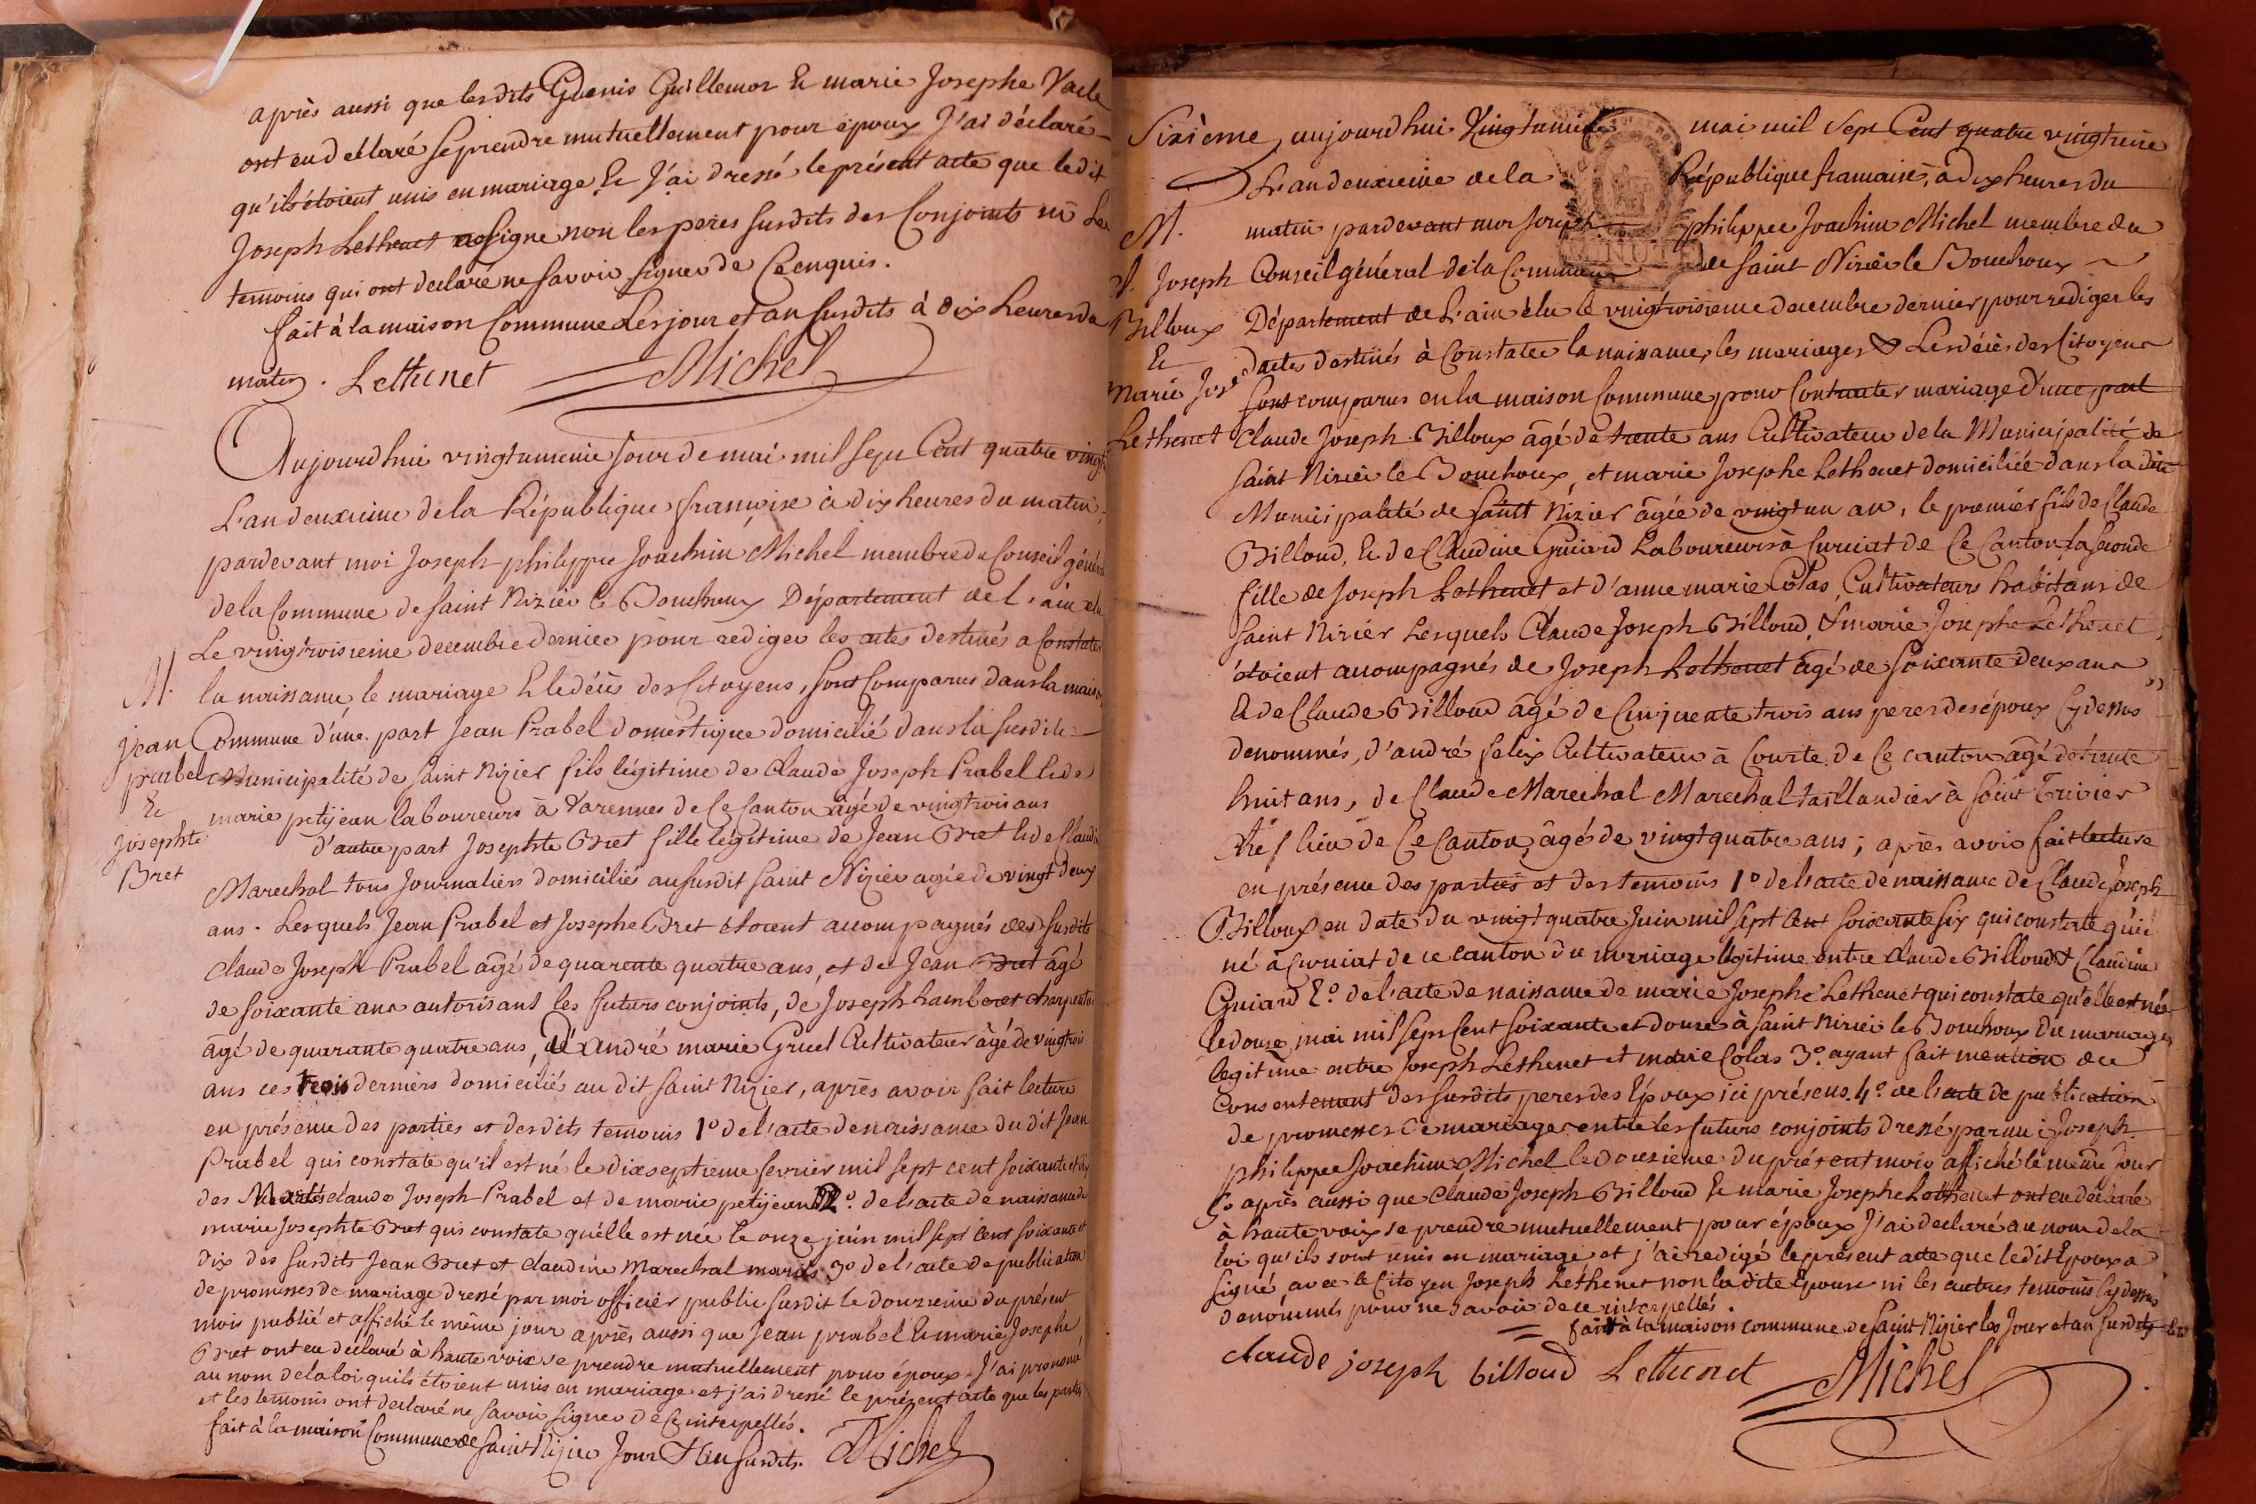 après aussi que lesdits Guenis Guillemoz Et marie Josephe Vaile
ont eu déclaré se prendre mutuellement pour époux J'ai déclaré
qu'ils étoient unis en mariage Et J'ai dressé le présent acte que ledit
Joseph Lethenet a signé non les peres susdits des Conjoints ni Les
temoins qui ont declaré ne savoir signer de Ce enquis.
fait à la maison Commune Les jour et an susdits à dix heures du
matin. Lethenet Michel
Aujourdhui vingtunieme Jour de mai mil sept Cent quatre vingt
L'an deuxieme de la République françoise à dix heures du matin,
pardevant moi Joseph philippe Joachim Michel membre du Conseil géné
de la Commune de saint Nizier le Bouchoux Département de L'ain elu
Le vingtroisieme decembre dernier pour rediger les actes destinés a Constater
M. la naissance, le mariage Et le décès des Citoyens, sont Comparus dans la maison
Jean Commune d'une part Jean Prabel domestique domicilié dans la susdite
prabel Municipalité de saint Nizier fils légitime de Claude Joseph Prabel Et de
Et marie petijean laboureurs à Varennes de Ce Canton âgé de vingtrois ans
Josephte d'autre part Josephte Bret fille légitime de Jean Bret Et de Claudi
Bret Marechal tous Journaliers domiciliés au susdit saint Nizier agée de vingt deux
ans. Lesquels Jean Prabel et Josephe Bret étoient accompagnés des susdits
Claude Joseph Prabel âgé de quarente quatre ans, et de Jean Bret âgé
de soixante ans autorisant les futurs conjoints, de Joseph hamberet charpentier
âgé de quarante quatre ans, d'André marie Gruel Cultivateur âgé de vingtrois
ans ces trois derniers domicilié au dit saint Nizier, après avoir fait lecture
en présence des parties et desdits temoins 1º de l'acte de naissance du dit Jean
Prabel qui constate qu'il est né le dixseptieme fevrier mil sept cent soixante et dix
des Mariés claude Joseph Prabel et de marie petijean 2º. de l'acte de naissance de
marie Josephte Bret qui constate quélle est née le onze juin mil sept Cent soixante et
dix des susdits Jean Bret et Claudine Marechal mariés 3º de l'acte de publication
de promesses de mariage dressé par moi officier public susdit le douzieme du présent
mois publié et affiché le même jour après aussi que Jean prabel Et marie Josephe
Bret ont eu déclaré à haute voix se prendre mutuellement pour époux J'ai prononcé
au nom de la loi quils étoient unis en mariage et j'ai dressé le présent acte que les parties
et les temoins ont déclaré ne savoir signer de Ce interpellés.
fait à la maison Commune de saint Nizier Jour Et an susdits. Michel
Sixième aujourdhui Vingtunieme mai mil sept Cent quatre vingtreize
L'an deuxieme de la République francaise, à dix heures du
M. matin pardevant moi Joseph philippe Joachim Michel membre du
Joseph Conseil général de la Commune de saint Nizier le Bouchoux
Billoux Département de L'ain élu le vingtroisieme decembre dernier pour rediger les
Et actes destinés à Constater la naissance, les mariages & Les décès des Citoyens
Marie Jose sont comparus en la maison Commune, pour Contracter mariage d'une part
Lethenet Claude Joseph Billoux âgé de trente ans Cultivateur de la Municipalité de
saint Nizier le Bouchoux, et marie Josephe Lethenet domiciliée dans la dite
Municipalité de saint Nizier âgée de vingt un an, le premier fils de Claude
Billoud, Et de Claudine Guiard Laboureurs à Curciat de Ce Canton, la seconde
fille de Joseph Lethenet et d'anne marie Colas, Cultivateurs habitans de
saint Nizier Lesquels Claude Joseph Billoud, & marie Josephe Lethenet,
étoient accompagnés de Joseph Lethenet âgé de soixante deux ans
Et de Claude Billoud âgé de Cinquente trois ans peres des époux Cy dessus
denommés, d'andré felix Cultivateur à Courte. de Ce canton âgé de trente
huit ans, de Claude Marechal Marechal taillandier à saint Trivier
Chef lieu de Ce Canton, âgé de vingt quatre ans; après avoir fait lecture
en présence des parties et des temoins 1º de l'acte de naissance de Claude Joseph
Billoux en date du vingt quatre Juin mil sept Cent soixante six qui constate qu'il
né à Curciat de ce canton du mariage légitime entre Claude Billoud & Claudine
Guiard 2º. de l'acte de naissance de marie Josephe Lethenet qui constate qu'elle est née
le douze mai mil sept Cent soixante et douze à saint Nizier le Bouchoux du mariage
legitime entre Joseph Lethenet et marie Colas 3º. ayant fait mention du
Consentement des susdits peres des Epoux ici présens. 4º. de l'acte de publication
de promesses de mariage entre les futurs conjoints dressé par moi Joseph
philippe Joachim Michel le douzieme du présent mois affiché le même Jour
5º après aussi que Claude Joseph Billoud Et marie Josephe Lethenet ont eu déclaré
à haute voix se prendre mutuellement pour époux J'ai declaré au nom de la
loi qu'ils sont unis en mariage et j'ai redigé le présent acte que ledit Epoux a
signé, avec le Citoyen Joseph Lethenet non la dite Epouse ni les autres temoins Cy dessus
denommés pour ne savoir de ce interpellés.
fait à la maison commune de saint Nizier les Jour et an susdits
claude joseph billoud Lethenet Michel